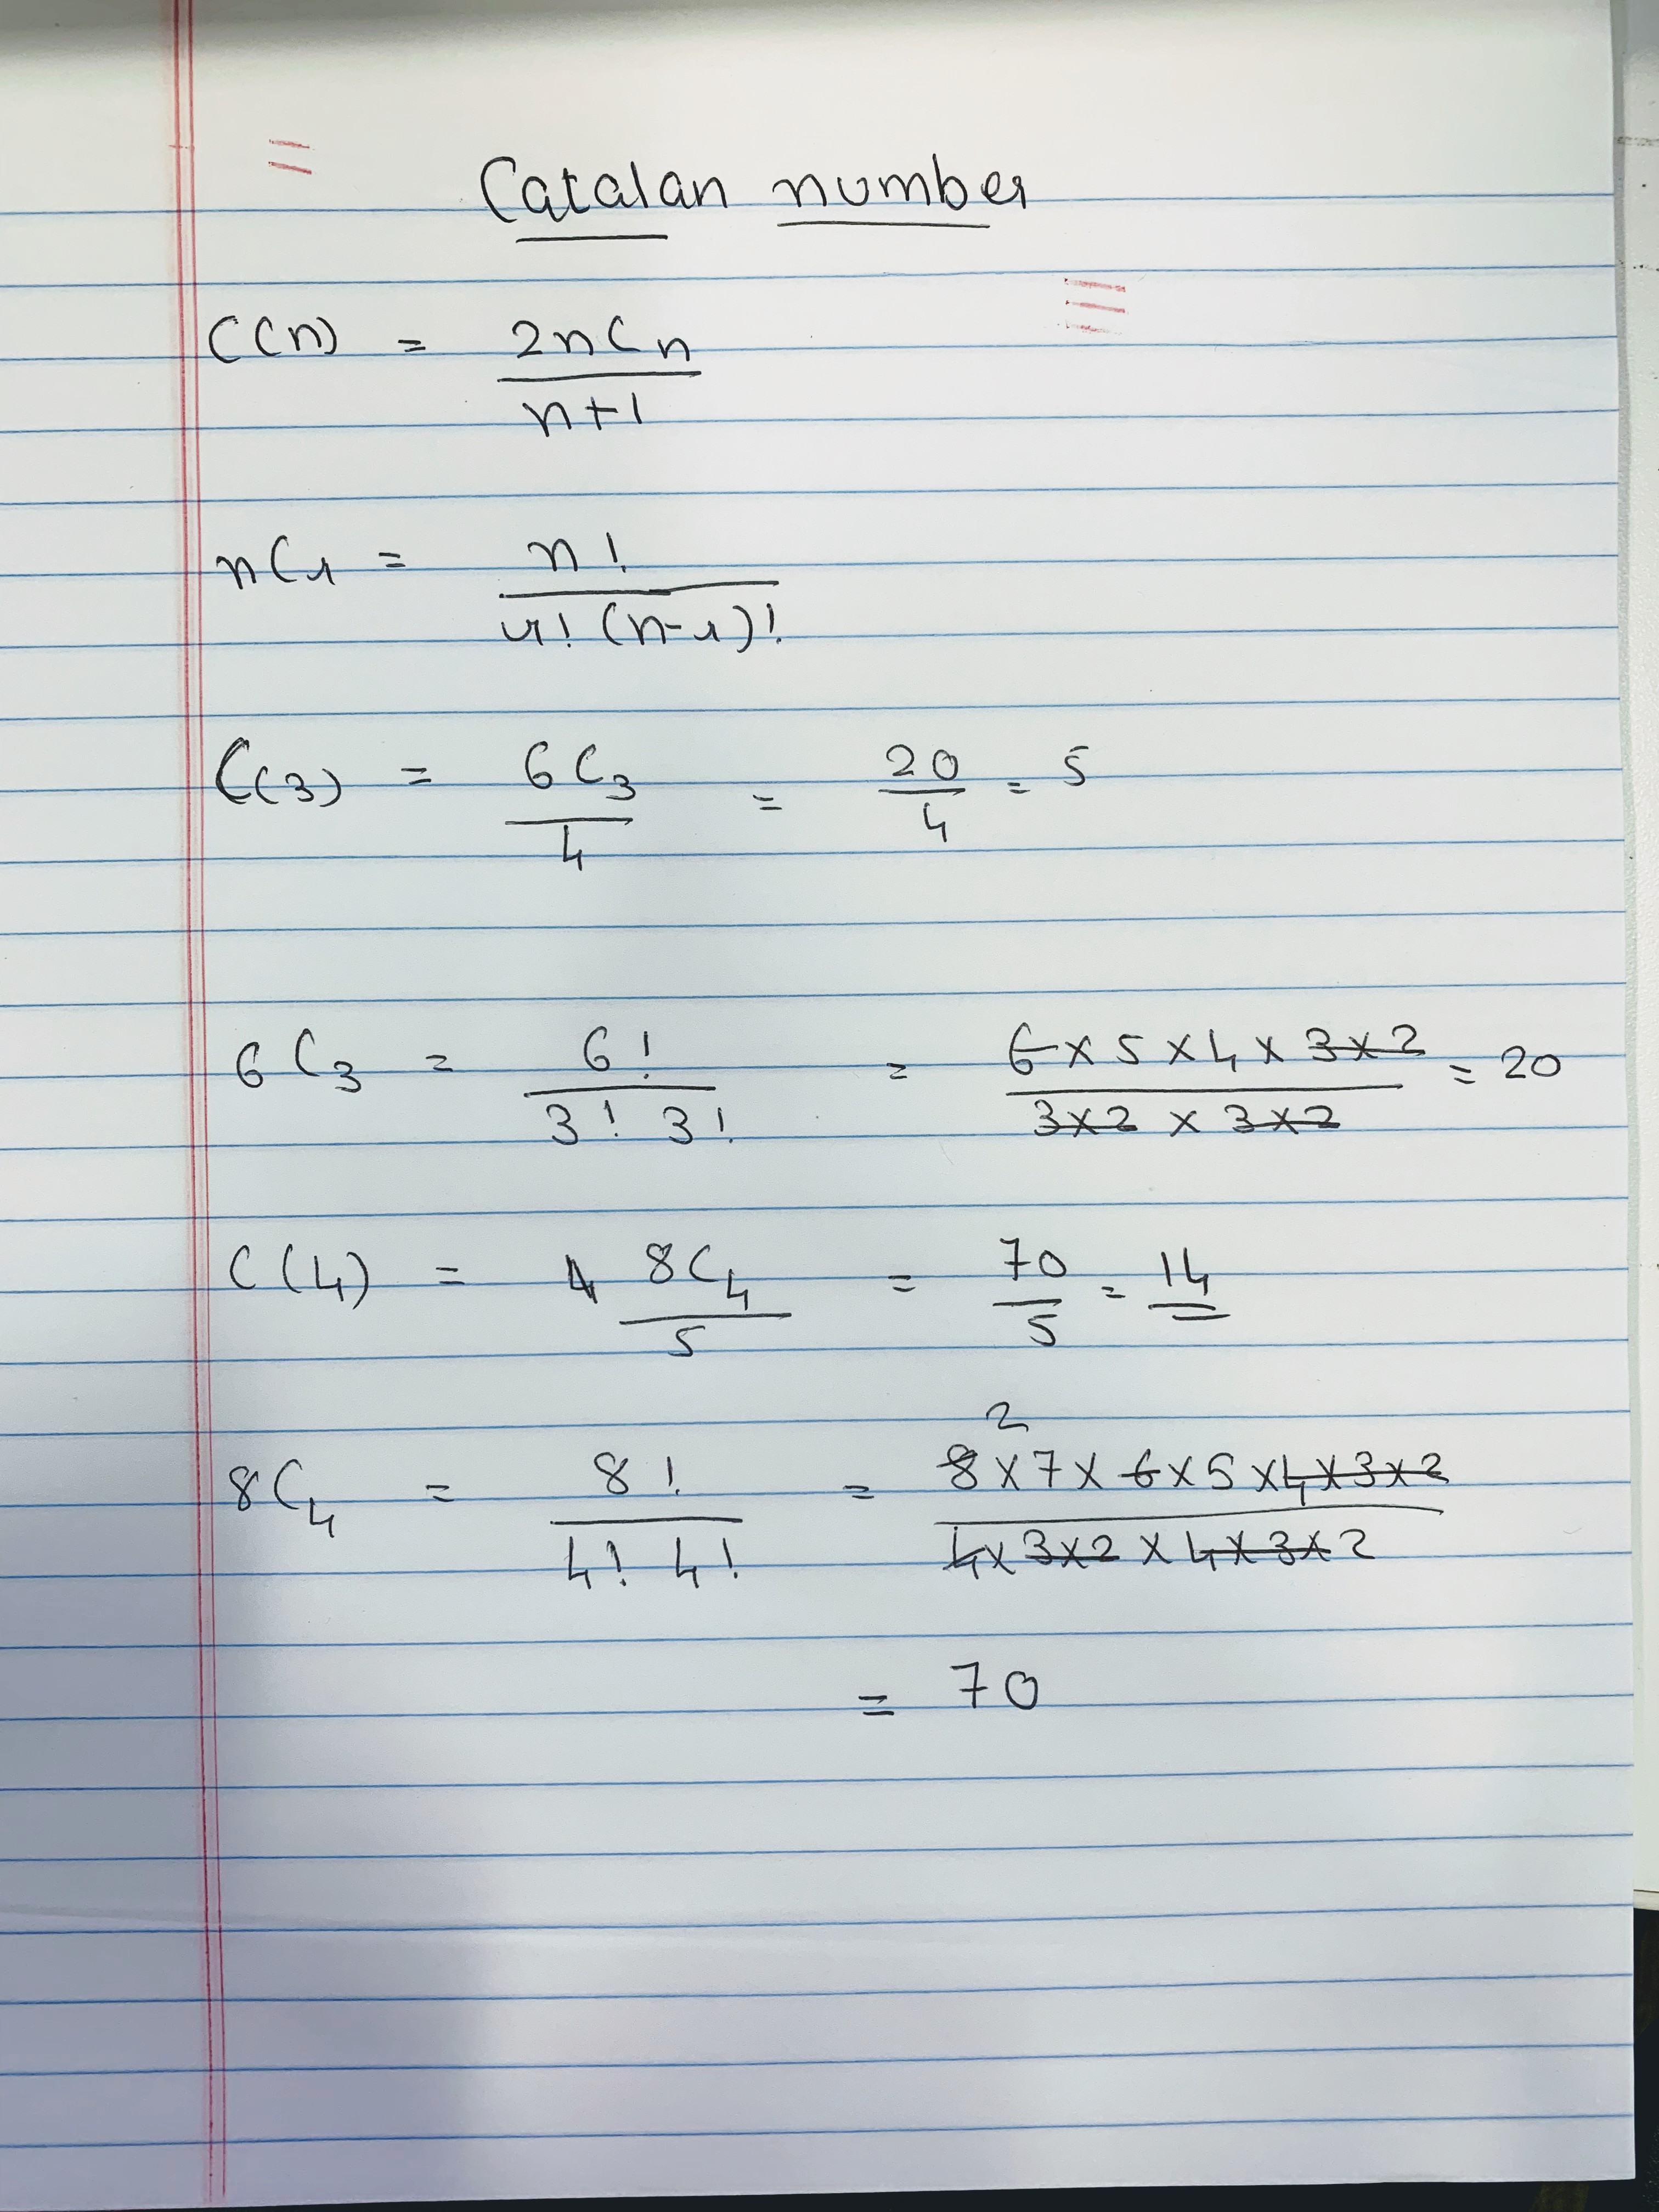 Catalan number
C(n) = 2nCn / n+1
nCr = n! / r! (n-r)!
C(3) = 6C3 / 4 = 20 / 4 = 5
6C3 = 6! / 3! 3! = 6 x 5 x 4 x 3 x 2 / 3x2 x 3x2 = 20
C(4) = 8C4 / 5 = 70 / 5 = 14
2
8C4 = 8! / 4! 4! = 8 x 7 x 6 x 5 x 4 x 3 x 2 / 4 x 3 x 2 x 4 x 3 x 2
= 70